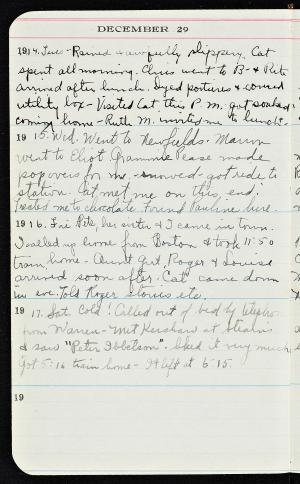 DECEMBER 29
1914. Tues - Rained & awfully slippery. Cat
spent all morning. Chris went to B - & Rita
arrived after lunch. Dyed portieres & covered
utility box - Visited Cat this P.M. got soaked
coming home - Ruth M. invited me to lunch.
19 15. Wed. Went to Newfields. Marion
went to Eliot. Grammie Pease made
popovers for me - snowed - got ride to
station. Cat met me on this end;
Treated me to chocolate. Found Pauline here.
19 16. Fri Pete, her sister & I came in town.
I called up home from Boston & took 11:50
train home - Aunt Gert, Roger & Louise
arrived soon after. Cat came down
in eve. Told Roger stories etc.
19 17. Sat. Cold! Called out of bed by telephone
from Warren - Met Kershaw at Stearns
& saw "Peter Ibbetson". Liked it very much
Got 5:16 train home - It left at 6:15.
19